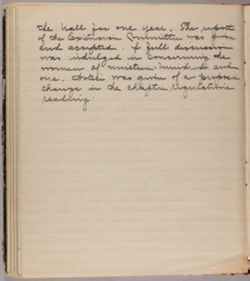 the hall for one year. The report
of the Extension Committee was given
and accepted. A full discussion
was indulged in concerning the
women of nineteen hundred and
one. Notice was given of a proposed
change in the chapter regulations
reading: